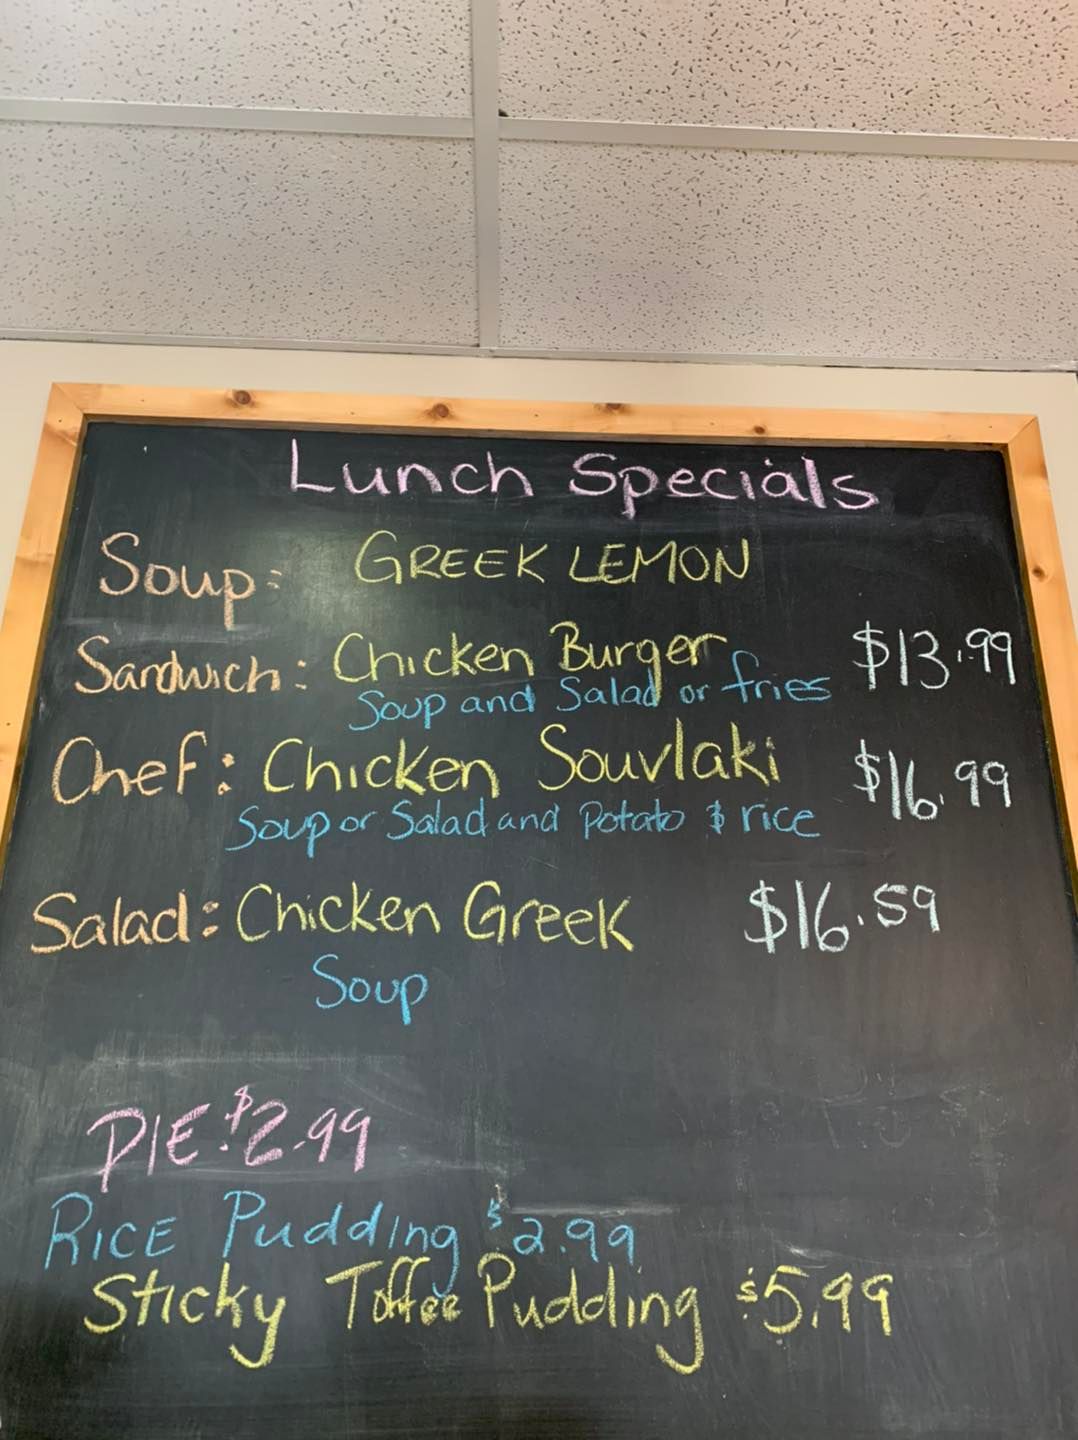 Lunch Specials
Soup: GREEK LEMON
Sandwich: Chicken Burger $13.99
Soup and Salad or fries
Chef: Chicken Souvlaki $16.99
Soup or Salad and Potato & rice
Salad: Chicken Greek $16.59
Soup
PIE: $2.99
RICE Pudding $2.99
Sticky Toffee Pudding $5.99